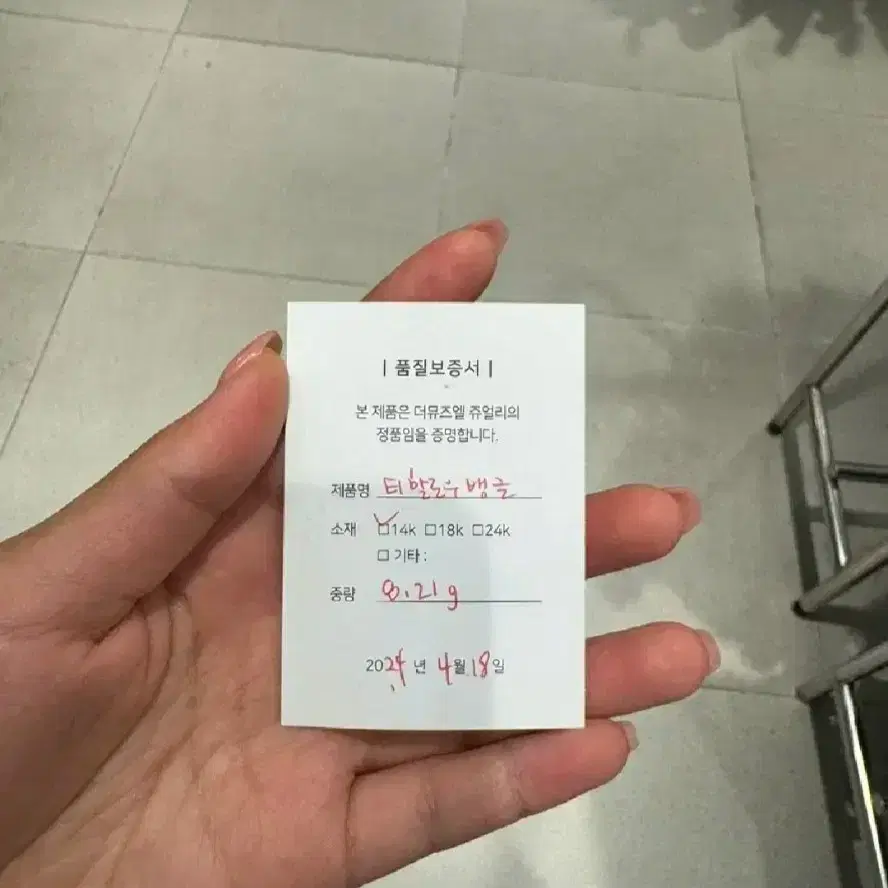 | 품질보증서 |
본 제품은 더뮤즈엘 쥬얼리의
정품임을 증명합니다.
제품명 티할로우뱅글
소재 ☑14k ☐18k ☐24k
☐ 기타 :
중량 8.21g
2024년 4월 18일